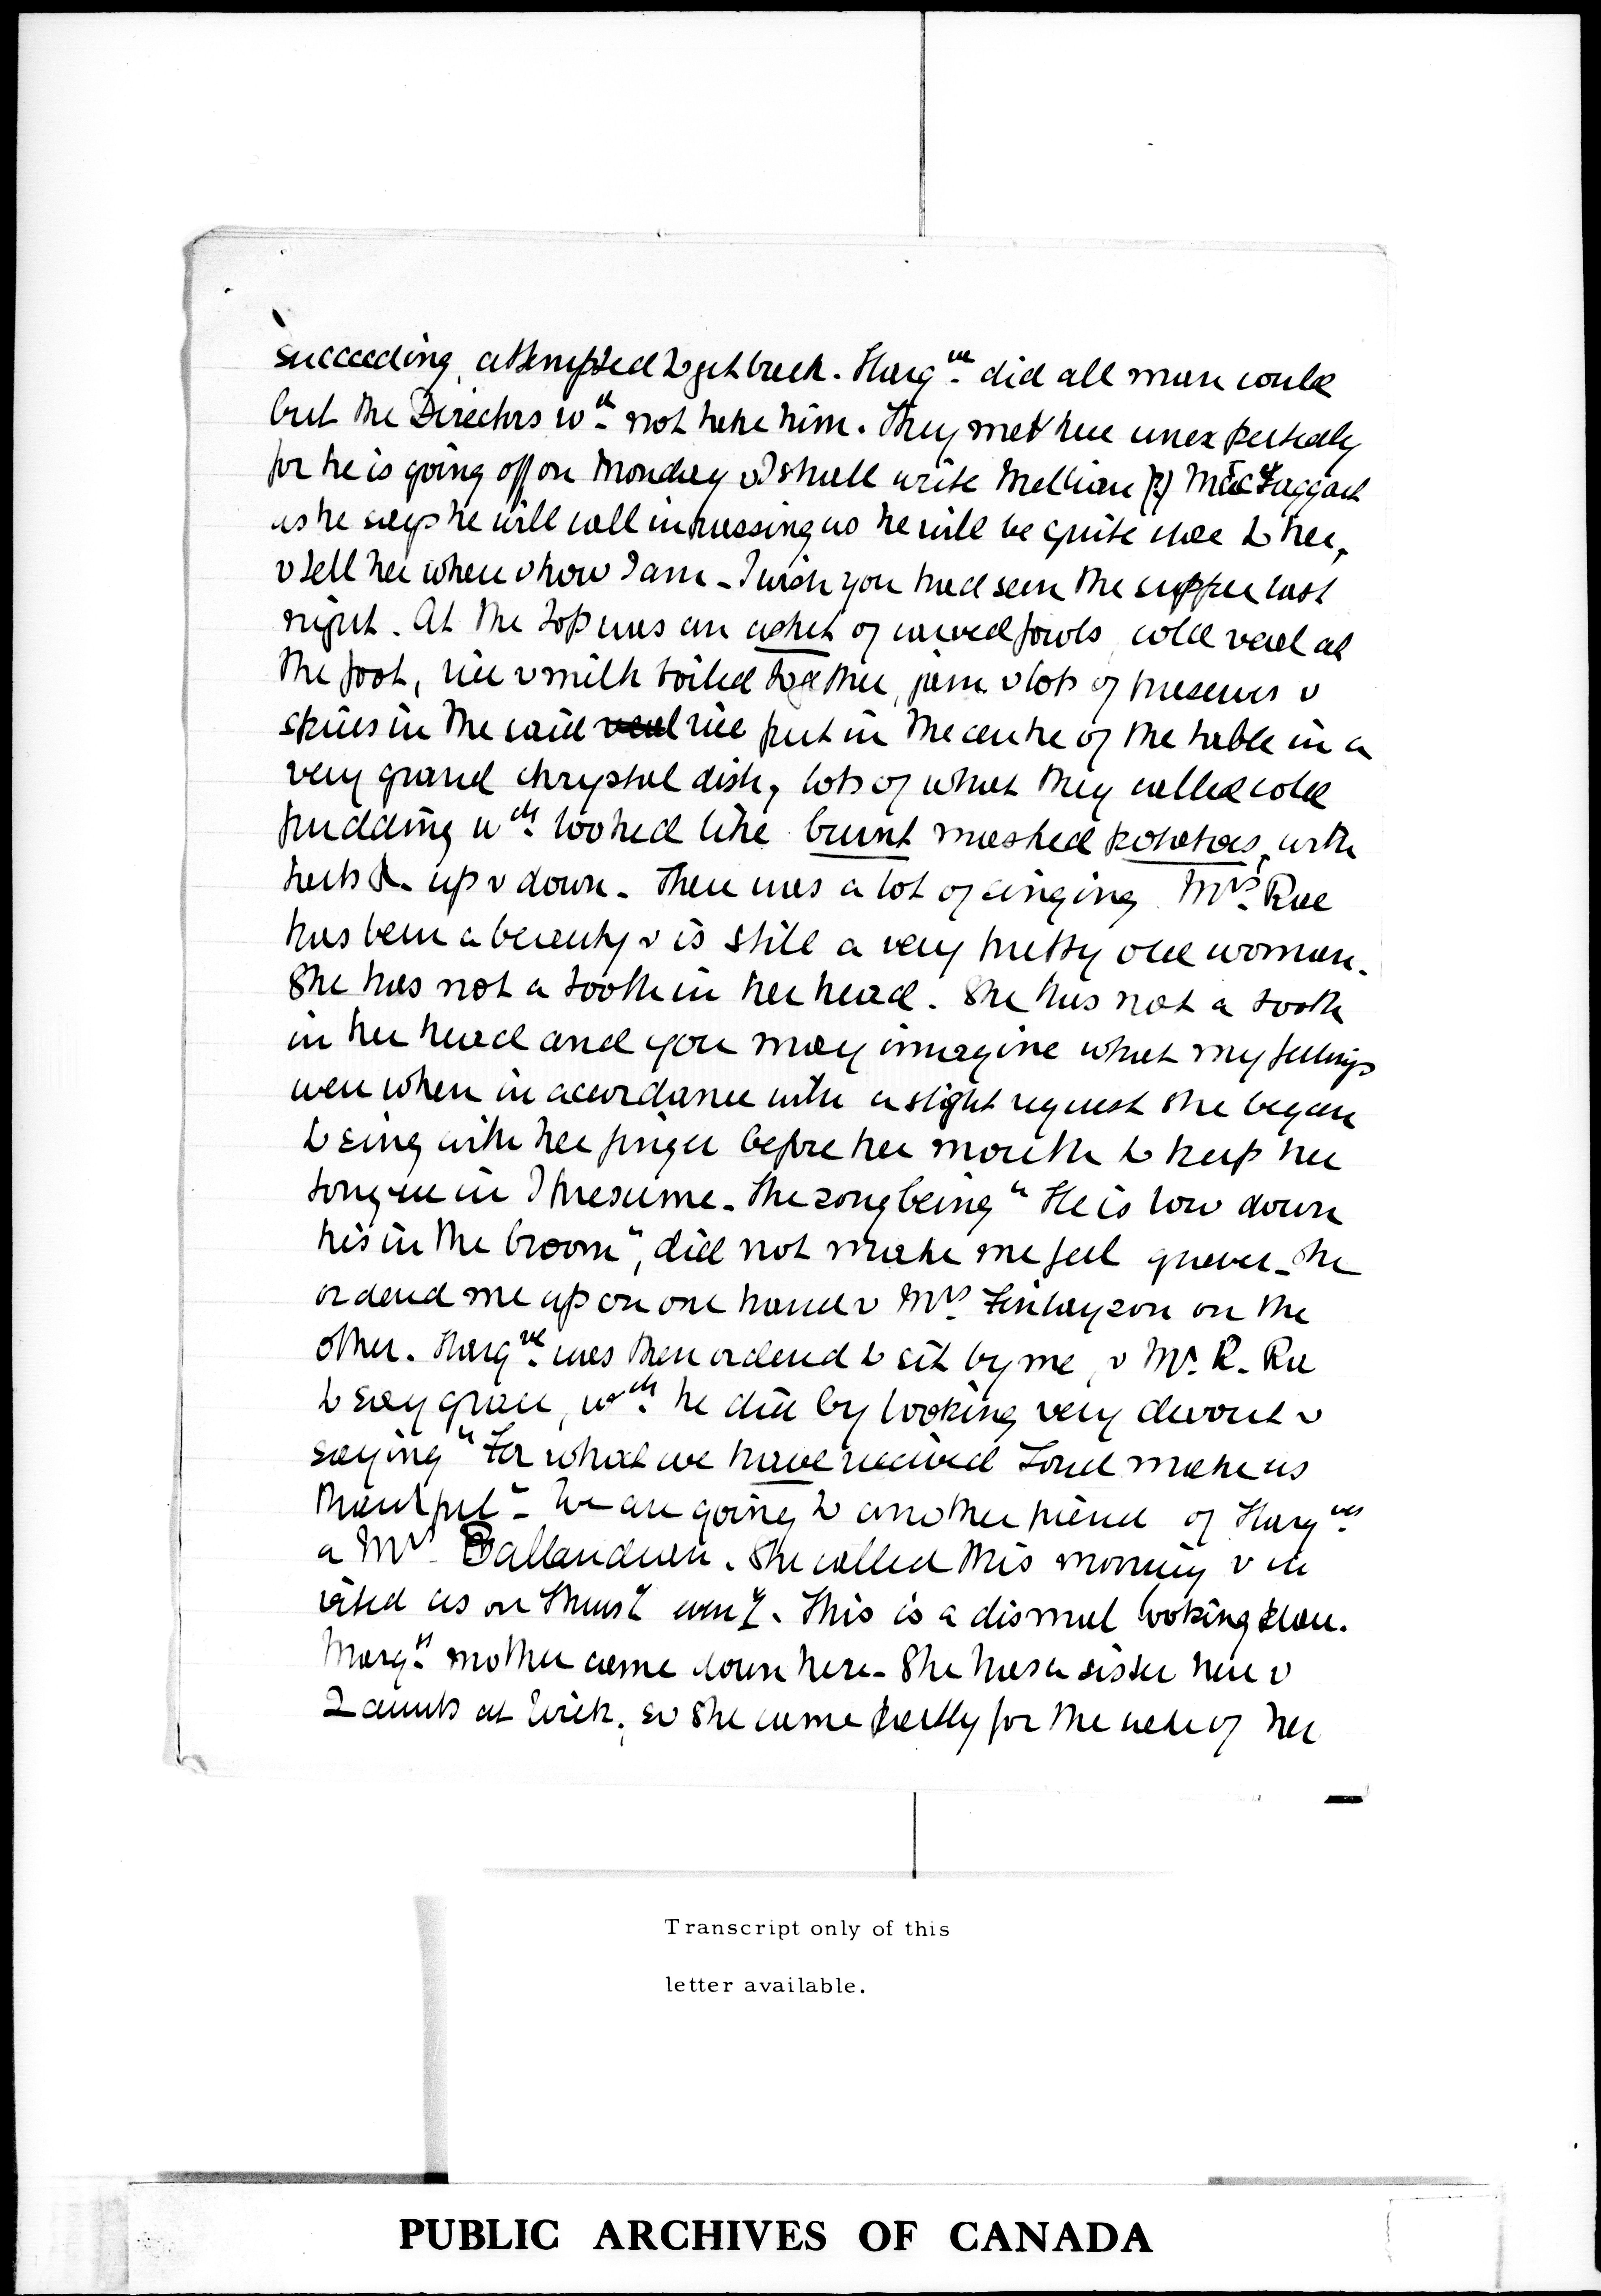 succeeding, attempted to get back. Harg^ve did all man could
but the Directors w^d not take him. They met here unexpectedly
for he is going off on Monday & I shall write (?) MacTaggart
as he says he will call in passing so he will be quite near to her,
& tell her when & how I am - I wish you had seen the supper last
night. At the top was an ashet of carved fowls, cold veal at
the foot, rice & milk boiled together, jam & lots of preserves &
spices in the said veal rice put in the centre of the table in a
very grand chrystal dish, lots of what they called cold
pudding w^ch looked like burnt mashed potatoes, with
herbs &. up & down. There was a lot of singing. Mrs. Rae
has been a beauty & is still a very pretty old woman.
She has not a tooth in her head. She has not a tooth
in her head and you may immagine what my feelings
were when in accordance with a slight request she began
to sing with her finger before her mouth to keep her
tongue in I presume. The song being "He is low down
his in the broom", did not make me feel graver - She
ordered me up on one hand & Mrs Finlayson on the
other. Harg^ve was then ordered to sit by me, & Mr. R. Rae
to say grace, w^ch he did by looking very devout &
saying "For what we have received Lord make us
thankful" - We are going to another friend of Harg^ves
a Mrs Ballanduen. She called this morning & in
vited us on Thurs^y even^g. This is a dismal looking place.
Marg^ts mother came down here - She has a sister here &
2 aunts at Leith, so she came partly for the sake of her
Transcript only of this
letter available.
PUBLIC ARCHIVES OF CANADA